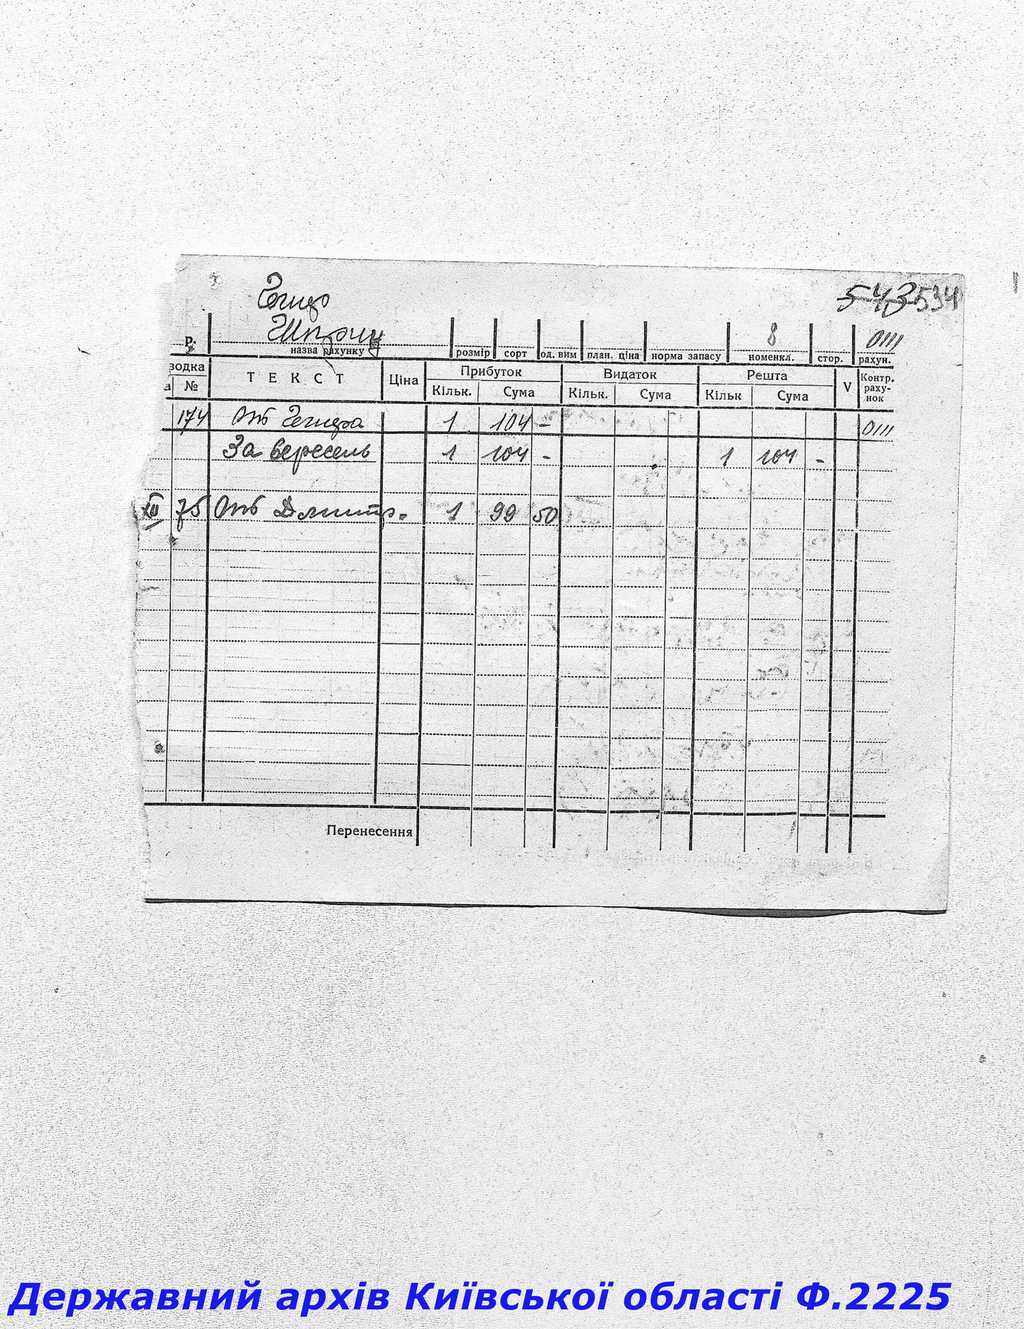 543 534
8 0111
р.
назва рахунку розмір сорт од. вим план. ціна норма запасу номенкл. стор. рахун.
водка ТЕКСТ Ціна Прибуток Видаток Решта V Контр. раху-нок
№ Кільк. Сума Кільк. Сума Кільк Сума
174 1 104 - 0111
За вересень 1 104 - 1 104 -
XII 75 1 99 50
Перенесення
Державний архів Київської області Ф.2225